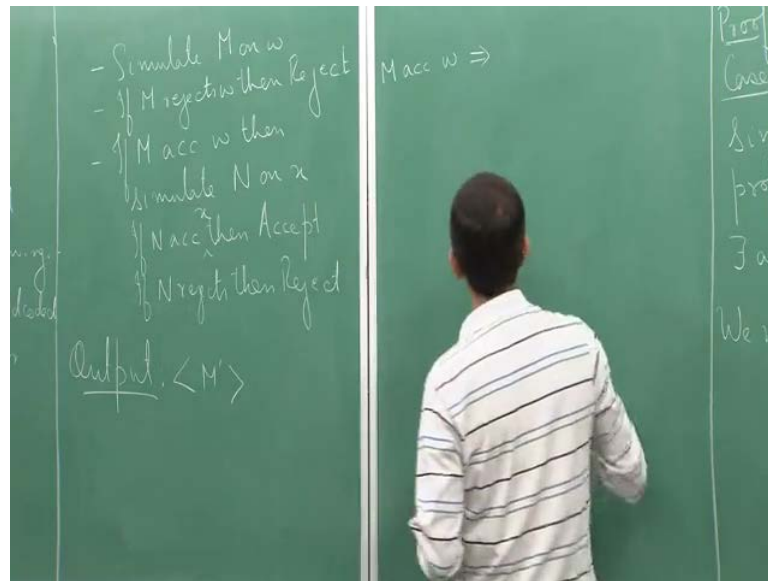 - Simulate M on w
- If M rejects w then Reject
- If M acc w then
Simulate N on x
If N acc x then Accept
If N rejects then Reject
Output. < M' >
M acc w ⇒
Proof
Case
Sin
pro
∃ a
We